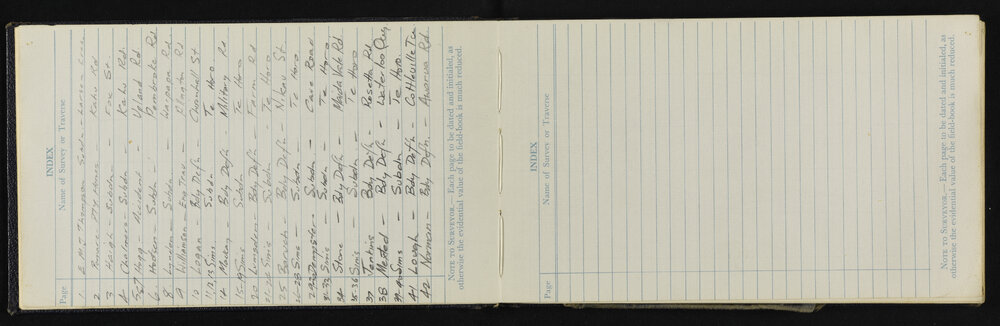 INDEX
Page Name of Survey or Traverse
1 Thompson Subdn
2 Power Kahu Rd
3 Haigh Subdn – Fox St
4 Chalmers – Subdn – Kahu Rd
Hogg – Upland Rd
6 Hudson – Subdn – Pembroke Rd
8 Lynden – Subdn
9 Williamson – Rd
10 Logan – Bdy Defn – Churchill St
11, 12, 13 Sims – Subdn – Te Horo
14 Mackay – Bdy Defn – Military Rd
15-19 Sims – Subdn – Te Horo
20 Lumsden – Bdy Defn – Farm Rd
Sims – Subdn – Te Horo
25 – Bdy Defn – Nikau St
26-28 Sims – Subdn – Te Horo
Dempster – Subdn – Cave Road
31-33 Sims – Subdn – Te Horo
34 Stone – Bdy Defn – Maida Vale Rd
35-36 Sims – Subdn – Te Horo
37 Jenkins Bdy Defn – Rosetta Rd
38 Mexted – Bdy Defn – Waterloo Quay
39-40 Sims – Subdn – Te Horo
41 Lough – Bdy Defn – Cottleville Tce
42 Norman – Bdy Defn – Awarua Rd
NOTE TO SURVEYOR.—Each page to be dated and initialed, as
otherwise the evidential value of the field-book is much reduced.
INDEX
Page Name of Survey or Traverse
NOTE TO SURVEYOR.—Each page to be dated and initialed, as
otherwise the evidential value of the field-book is much reduced.